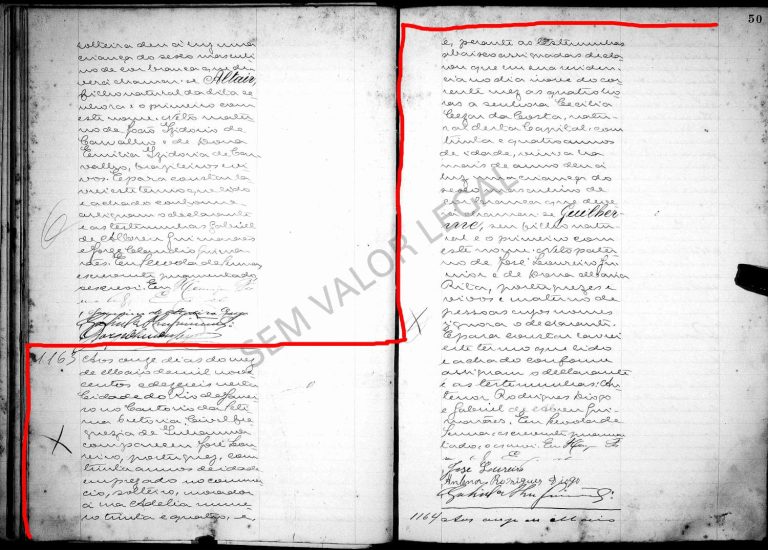 solteira deu á luz uma
criança do sexo masculi
no de cor branca que de
verá chamar-se Altair,
filho natural da dita se
nhora e o primeiro com
este nome. Neto mater
no de João Izidorio de
Carvalho e de Dona
Emilia Izidoria de Car
valho, brasileiros e vi
vos. E para constar la
vrei este termo que lido
e achado conforme
assignam o declarante
e as testemunhas Gabriel
de Abreu Guimarães
e Jorge
rães. Eu,
escrevente juramentado
o escrevi. Eu
6
1163 Aos onze dias do mez
de Maio de mil nove
centos e dezeseis nesta
Cidade do Rio de Janei
ro no Cartorio da Seti
ma Pretoria Civel fre
guezia de Inhauma
compareceu José Lou
reiro, portuguez, com
trinta annos de idade
empregado no commer
cio, solteiro, morador
á rua Adelia nume
ro trinta e quatro, e,
X
50
e, perante as testemunhas
abaixo assignadas decla
rou que em sua residen
cia no dia nove do cor
rente mez as quatro ho
ras a senhora Cecilia
Cezar da Costa, natu
ral desta Capital, com
trinta e quatro annos
de idade, viuva ha
mais de anno deu á
luz uma criança do
sexo masculino de
côr branca que deve
rá chamar-se Guilher
me, seu filho natu
ral e o primeiro com
este nome. Neto pater
no de José Loureiro Ju
nior e de Dona Maria
Rita, portuguezes e
vivos e materno de
pessoas cujos nomes
ignora o declarante.
E para constar lavrei
este termo que lido
e achado conforme
assignam o declarante
e as testemunhas: An
tenor Rodrigues Diogo
e Gabriel de Abreu Gui
marães. Eu,
escrevente juramen
tado, o escrevi. Eu
José Loureiro
Antenor Rodrigues Diogo
X
1164 Aos onze de Maio
SEM VALOR LEGAL